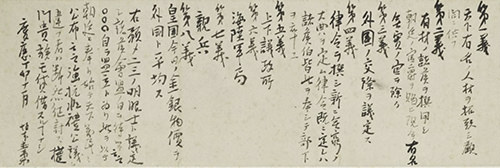 第一義
天下有名ノ人材ヲ招致シ顧
問ニ供フ
第二義
有材ノ諸侯ヲ撰用シ
朝廷ノ官爵ヲ賜ヒ現今有名
無実ノ官ヲ除ク
第三義
外国ノ交際ヲ議定ス
第四義
律令ヲ撰シ新ニ無窮ノ
大典ヲ定ム律令既ニ定レハ
諸侯伯皆此ヲ奉シテ部下
ヲ率ユ
第五義
上下議政所
第六義
海陸軍局
第七義
親兵
第八義
皇国今日ノ金銀物価ヲ
外国ト平均ス
右預メ二三ノ明眼士ト議定
シ諸侯会盟ノ日ヲ待ツテ云云
○○○自ラ盟主ト為リ此ヲ以テ
朝廷ニ奉リ始テ天下萬民ニ
公布云云強抗非礼公議ニ
違フ者ハ断然征討ス権
門貴族モ貸借スルナシ
慶應丁卯十一月 坂本直柔